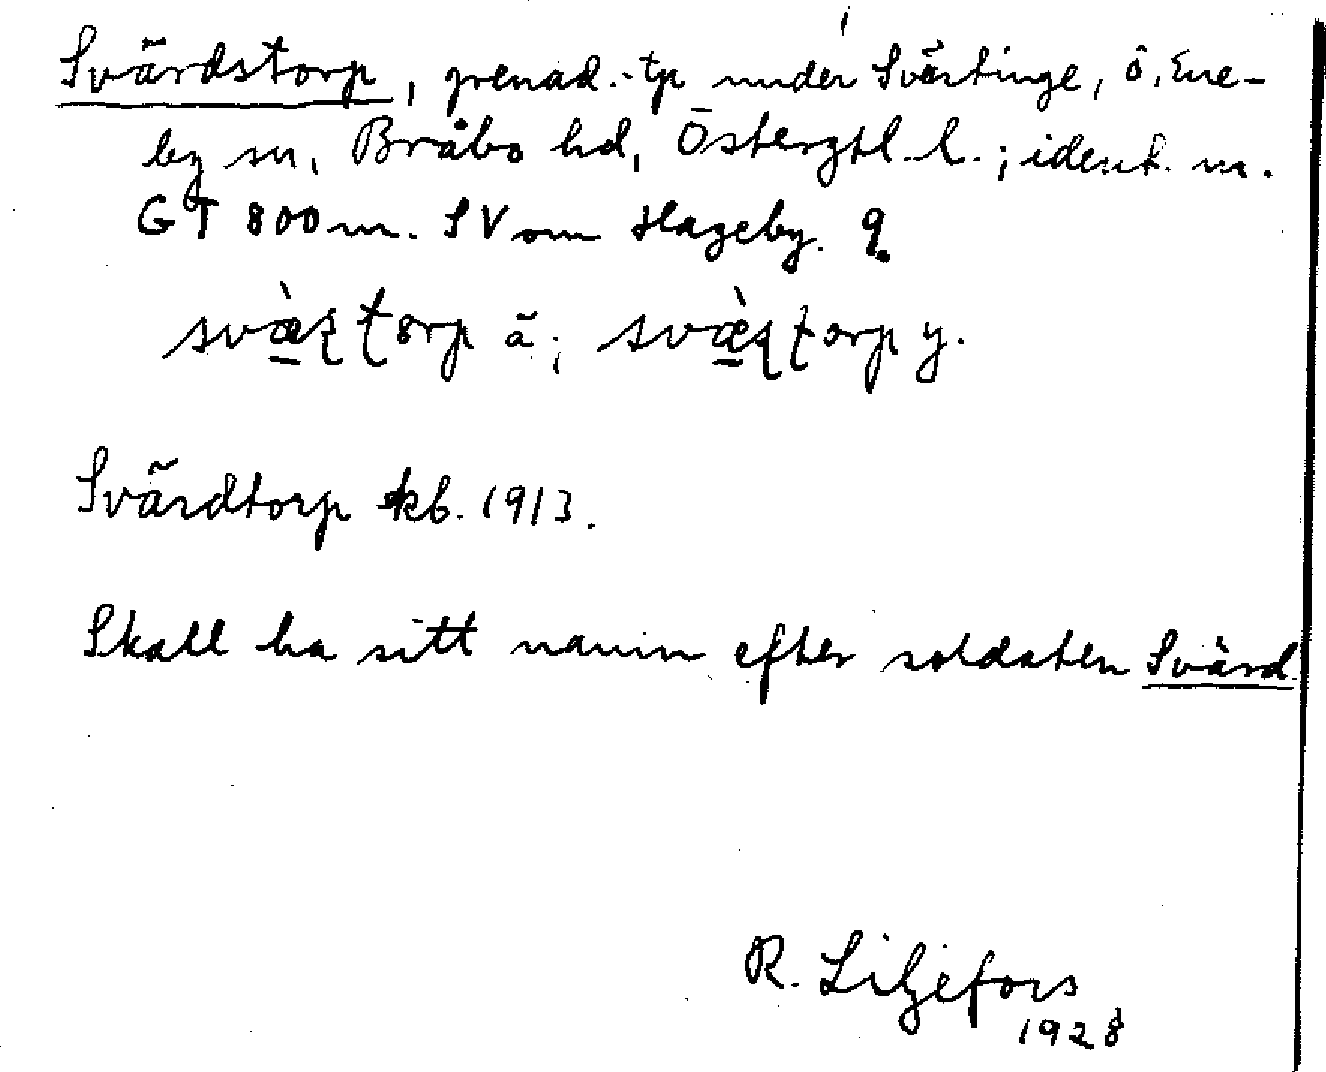 Svärdstorp, grenad.-tp under Svärtinge, Ö. Ene-
by sn, Bråbo hd, Östergtl. l.; ident. m.
GT 800 m. SV om Hageby.
svæ̀ṣṭorp ä; svæ̀ṣṭorp y.
Svärdtorp kb. 1913.
Skall ha sitt namn efter soldaten Svärd.
R. Liljefors
1928